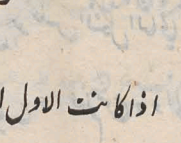 اذا كانت الاول